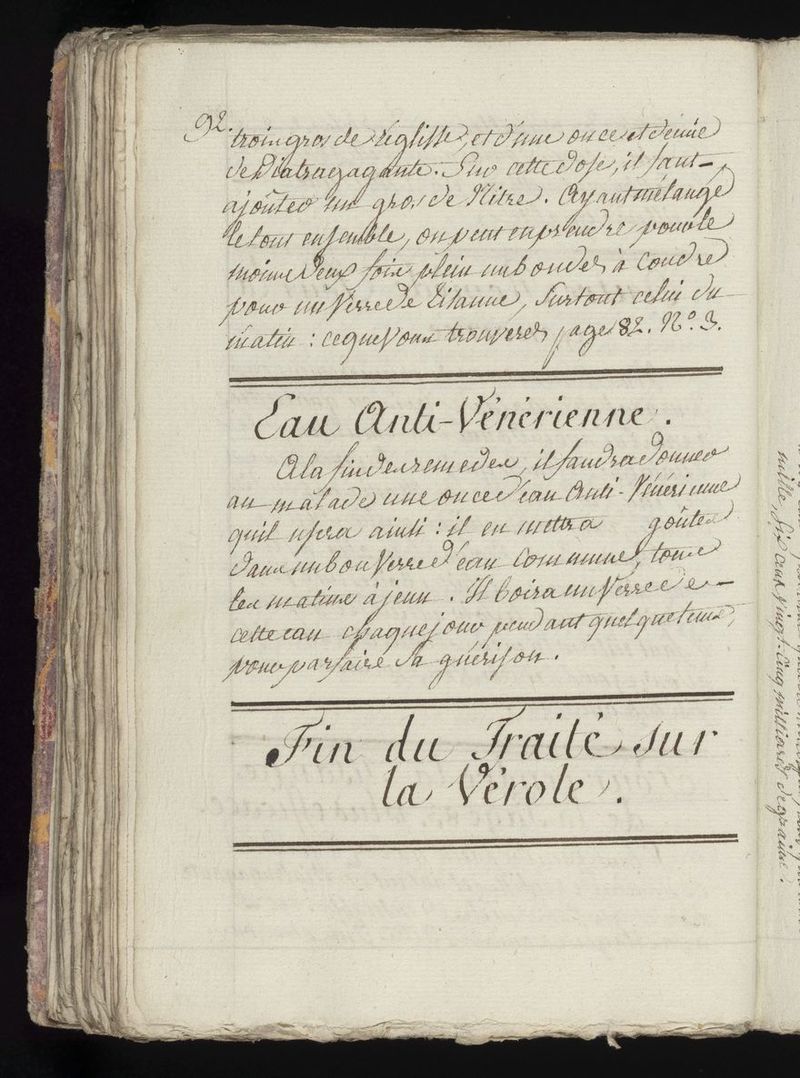 92.
trois gros de réglisse, et d'une once et demie
de Diatragagante. Sur cette dose, il faut
ajoûter un gros de Nitre. Ayant mélangé
le tout ensemble, on peut en prendre pour le
moins deux fois plein un bon dez à Coudre
pour un Verre de Tisanne, Surtout celui du
matin : ce que Vous trouverez page 82. N.º 3.
Eau Anti-Vénérienne.
A la fin des remedes, il faudra donner
au malade une once d'eau Anti-Vénérienne
qu'il usera ainsi : il en mettra goûtes
dans un bon Verre d'eau Commune, tous
les matins à jeun. Il boira un Verre de
cette eau chaque jour pendant quelque tems,
pour parfaire Sa guérison.
Fin du Traité sur
la Vérole.
mille, Six Cens Vingt-Cinq milliards de grains.